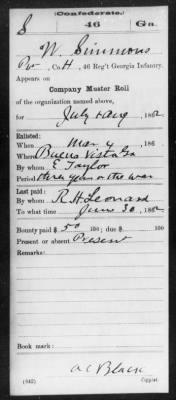 (Confederate.)
S 46 Ga.
W. Simmons
Pvt, Co. H, 46 Reg't Georgia Infantry.
Appears on
Company Muster Roll
of the organization named above,
for July & Aug, 1862.
Enlisted:
When Mar. 4, 186
Where Buena Vista Ga
By whom E Taylor
Period three years or the war
Last paid:
By whom R. H. Leonard
To what time June 30, 1862.
Bounty paid $ 50 100; due $ 100
Present or absent Present
Remarks:
Book mark:
A C Black
(642) Copyist.